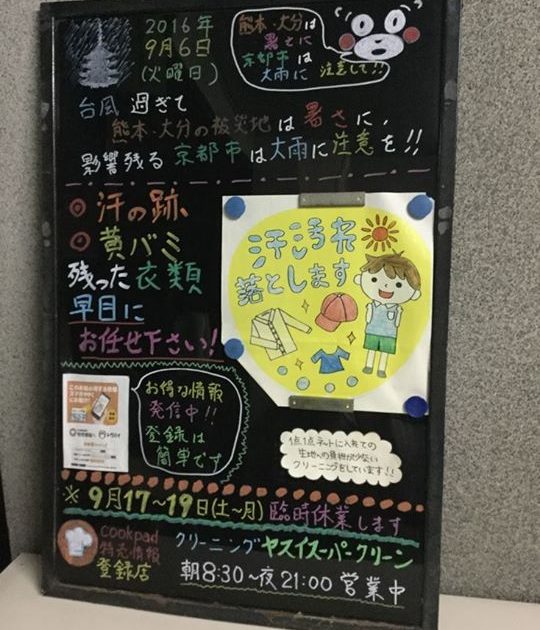 2016年
9月6日
(火曜日)
熊本・大分は
暑さに
京都市は
大雨に注意して!!
台風過ぎて
熊本・大分の被災地は暑さに、
影響残る京都市は大雨に注意を!!
汗の跡
黄バミ
残った衣類
早目に
お任せ下さい!
汗汚れ
落とします
お得な情報
発信中!!
登録は
簡単です
1点1点ネットに入れての
生地への負担が少ない
クリーニングをしています!!
※9月17~19日(土~月)臨時休業します
cookpad
特売情報
登録店
クリーニングヤスイスーパークリーン
朝8:30~夜21:00営業中